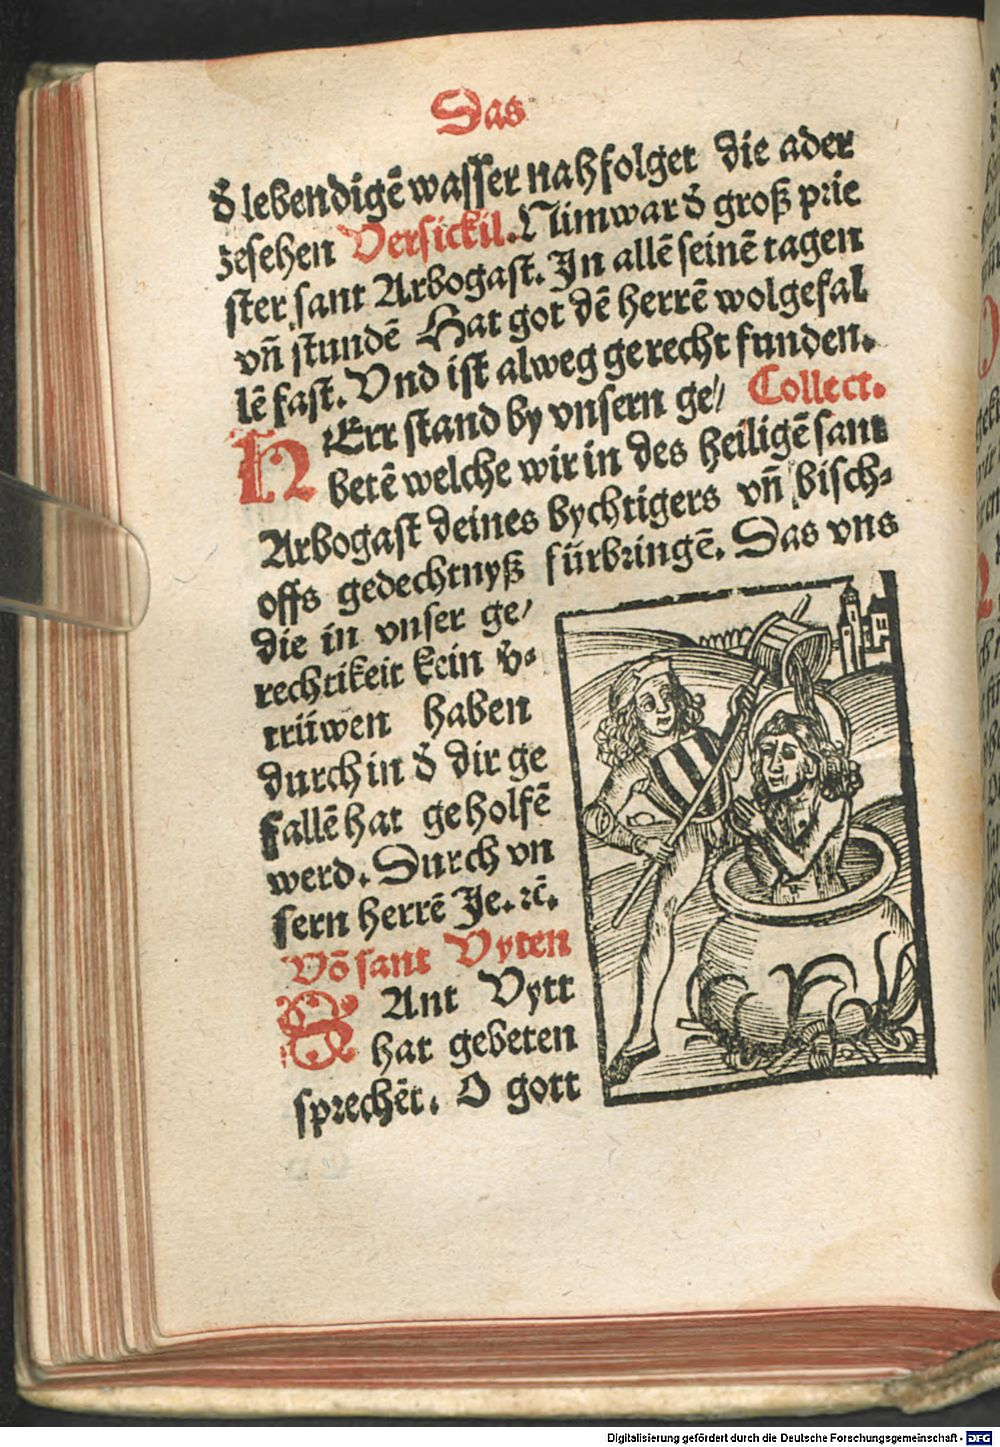 Das
d̕ lebendigē wasser nahfolget die ader
zesehen Versickil. Nim war d̕ groß prie
ster sant Arbogast. In allē seinē tagen
vñ stundē Hat got dē herrē wolgefal
lē fast. Vnd ist alweg gerecht funden.
HErr stand by vnsern ge/ Collect.
betē welche wir in des heiligē sant
Arbogast deines bychtigers vñ bisch⸗
offs gedechtnyß fürbringē. Das vns
die in vnser ge/
rechtikeit kein v̕⸗
trüwen haben
durch in d̕ dir ge
fallē hat geholfē
werd. Durch vn
sern herrē Je. ꝛc̄.
Vō sant Vyten
SAnt Vytt
hat gebeten
sprechēt. O gott
Digitalisierung gefördert durch die Deutsche Forschungsgemeinschaft - DFG